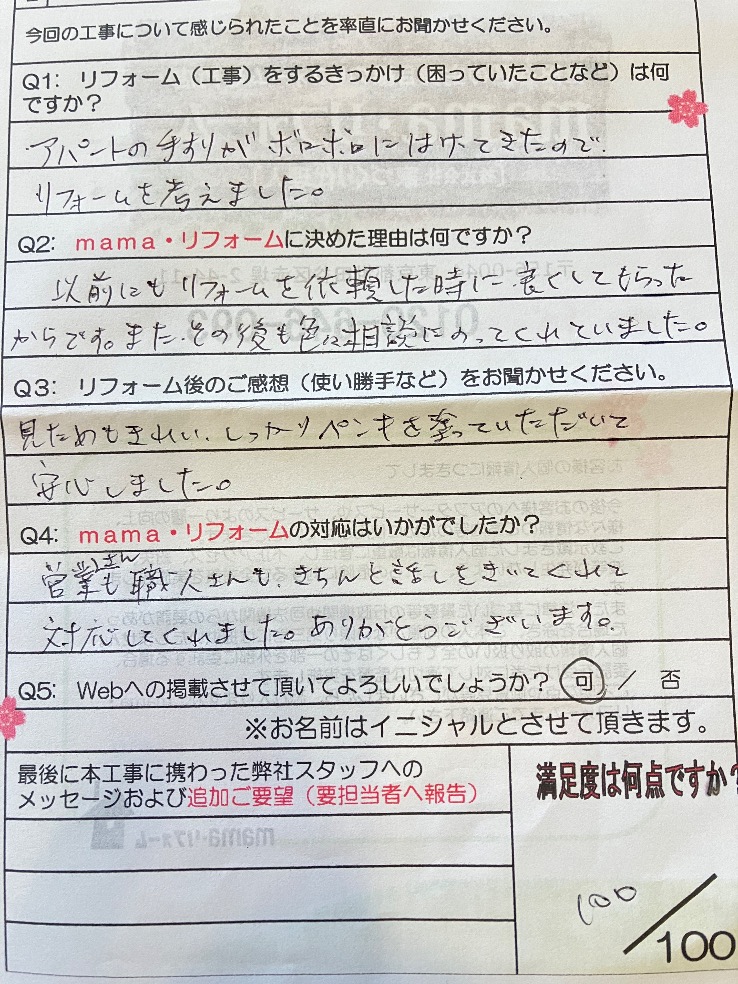 今回の工事について感じられたことを率直にお聞かせください。
Q1: リフォーム（工事）をするきっかけ（困っていたことなど）は何
ですか？
アパートの手すりがボロボロにはげてきたので、
リフォームを考えました。
Q2: mama・リフォームに決めた理由は何ですか？
以前にもリフォームを依頼した時に良くしてもらった
からです。また、その後も色々相談にのってくれていました。
Q3: リフォーム後のご感想（使い勝手など）をお聞かせください。
見ためもきれい、しっかりペンキを塗っていただいて
安心しました。
Q4: mama・リフォームの対応はいかがでしたか？
営業さんも職人さんも、きちんと話しをきいてくれて
対応してくれました。ありがとうございます。
Q5: Webへの掲載させて頂いてよろしいでしょうか？ 可 ／ 否
※お名前はイニシャルとさせて頂きます。
最後に本工事に携わった弊社スタッフへの
メッセージおよび追加ご要望（要担当者へ報告）
満足度は何点ですか？
100
/100